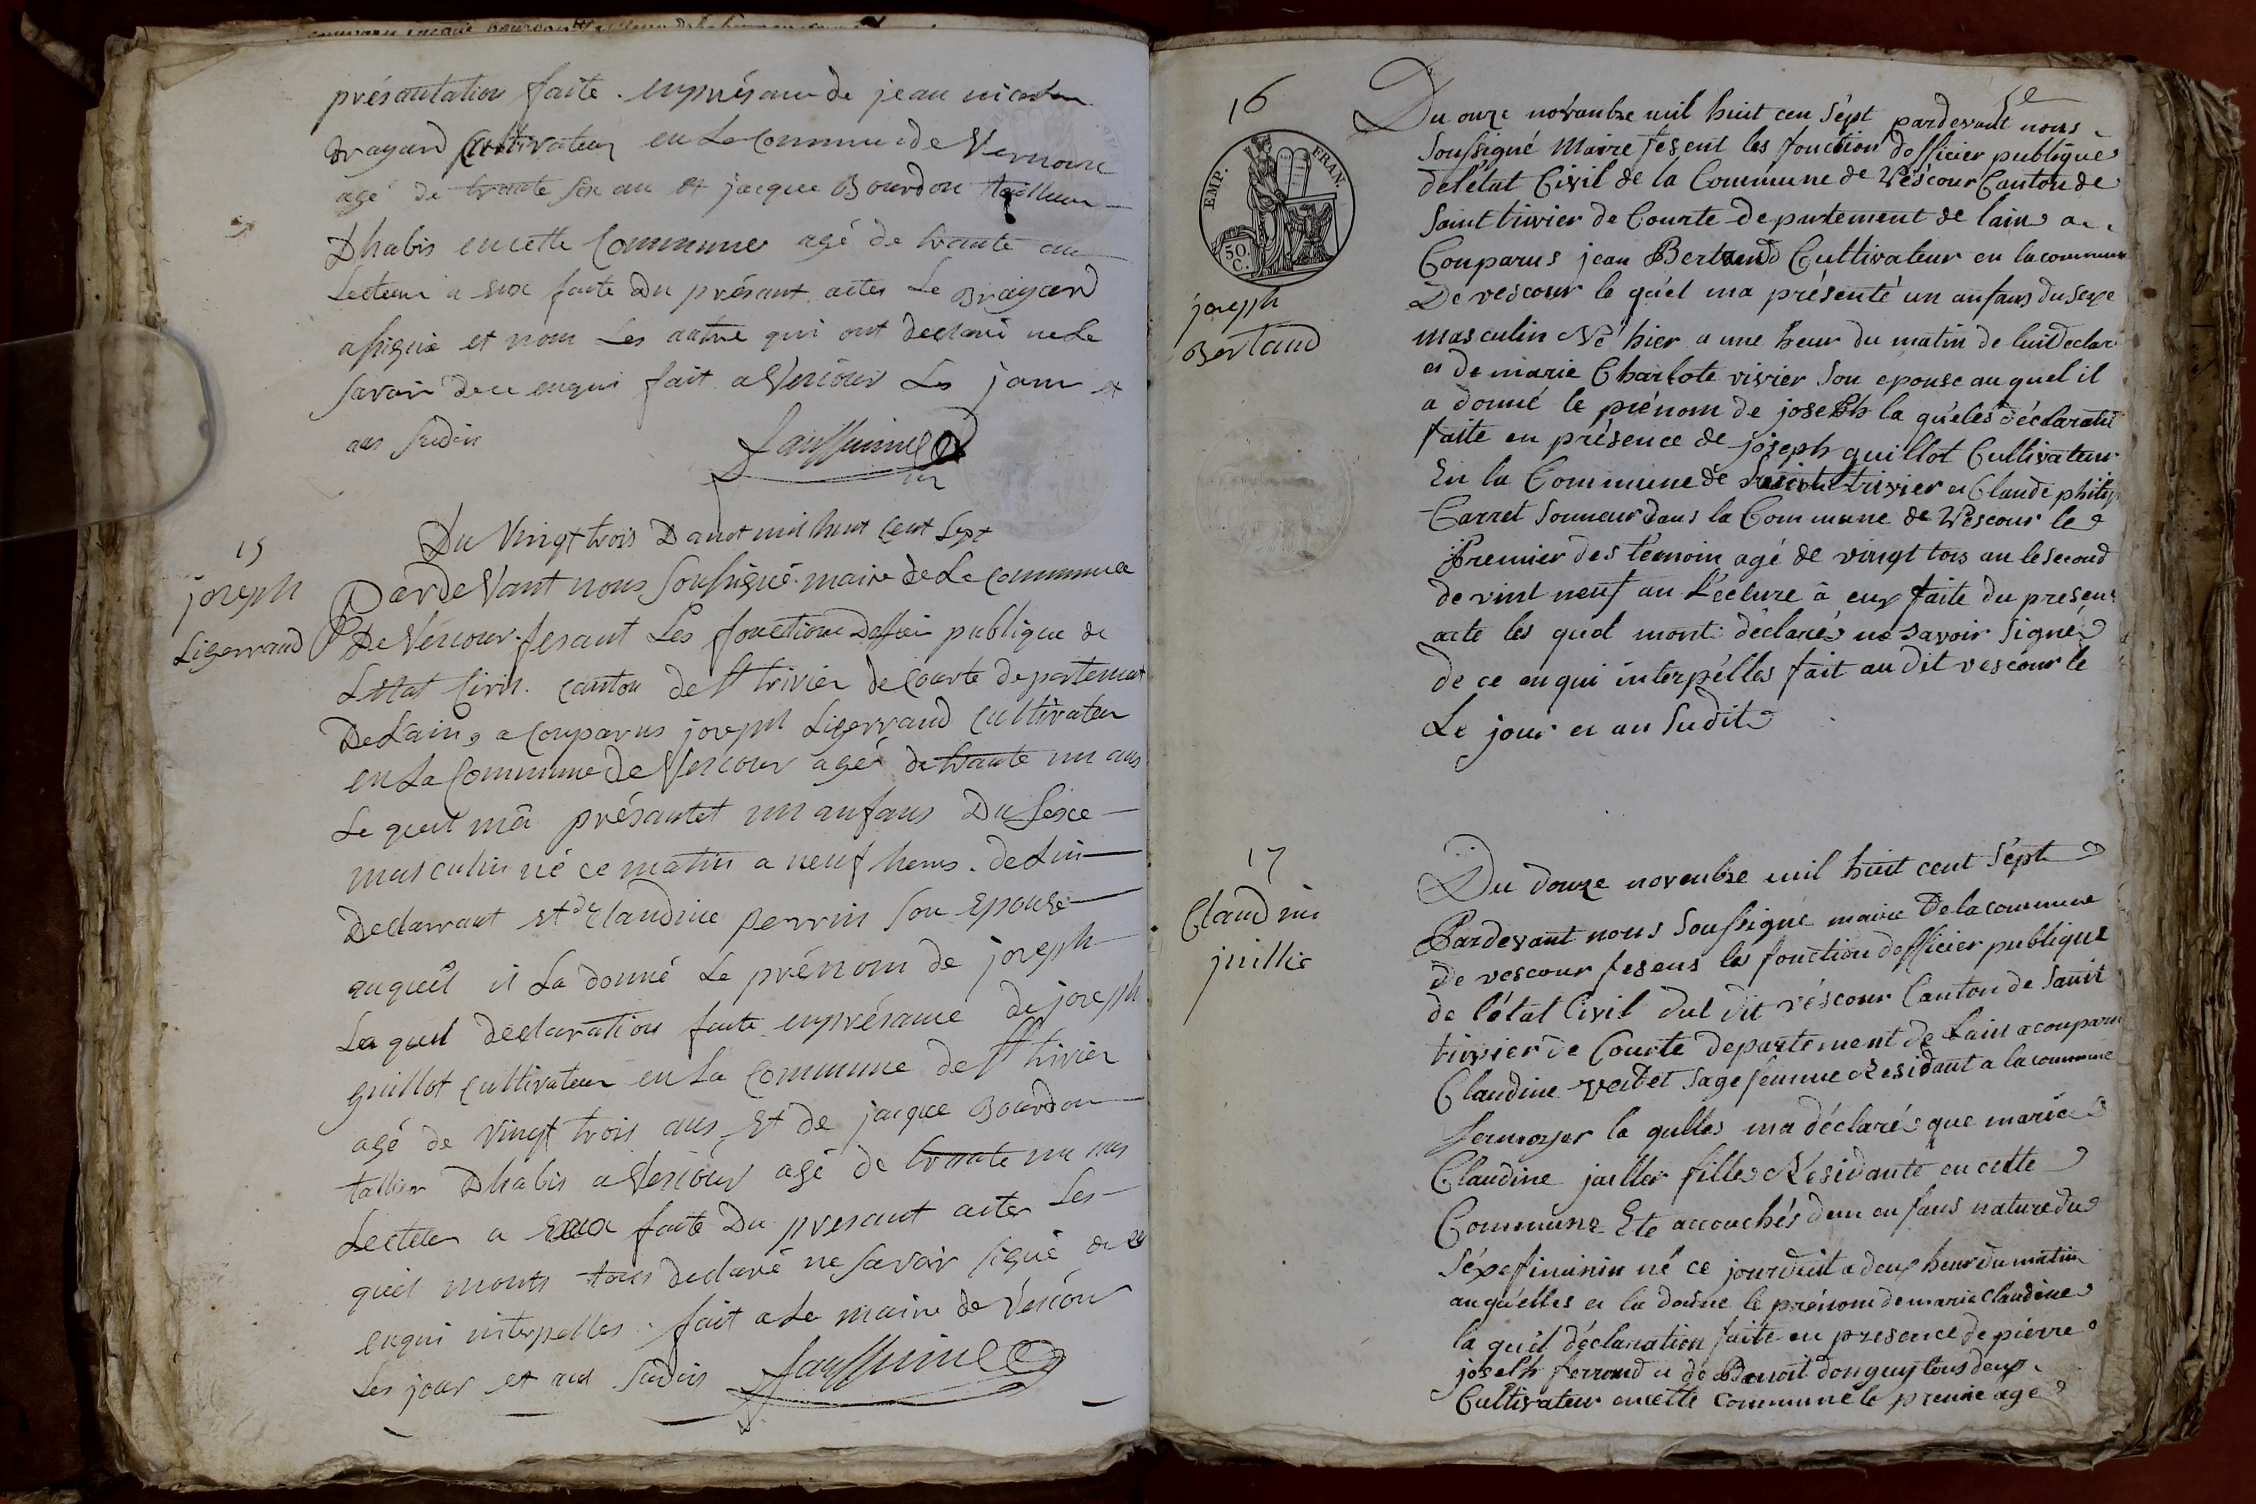 présantation faite. enprésance de jean
Brayard Cultivateur en La Commune de Vernoux
agé de trante six an et jacque Bourdon tailleur
Dhabis encette Commune agé de trante an
Lecteur a eux faite Du présant actes Le Brayard
asigné et nom Les autre qui ont declaré ne Le
savoir dece enqui fait a Vescour Les jour et
ans sudis

15
joseph
Ligerraud
Du Vingt trois Daout mil huit Cent Sept
ParDeVant nous soussigné maire de La Commune
De Véscour fesant Les fonctions Doffici publique de
Létat Civil. canton de St trivier de Courte departement
De Lain, a Comparus joseph Ligerraud Cultivateur
en La Commune de Vescour agé de trante un ans
Le quel mâ présantet un anfans Du Sexe
masculin né ce matin a neuf heurs. de Lui
Declarrant et de Claudine perrin son Epouse
auquêl il La donné Le prénom de joseph
La quel declaration faite enprésance de joseph
guillot Cultivateur en La Commune de St trivier
agé de Vingt trois ans Et de jacque Bourdon
tallier Dhabis a Vescour agé de trante un ans
Lecteur a Eux faite Du presant actes Les
quel monts tous declaré ne savoir signé de ce
enqui interpelles. fait a La maire de Véscour
Les jour et ans sudis

16
EMP. FRAN.
50 C.
joseph
Bertaud
Du onze novanbre mil huit cen sépt pardevant nous
soussigné Maire fesent les fonction dofficier publique
delétat Civil de la Commune de Véscour Canton de
Saint trivier de Courte departement de lain a
Conparus jean Bertaud Cultivateur en la commune
De vescour le quél ma présenté un anfans du sexe
masculin Né hier a une heur du matin de lui declar
et de marie Charlote vivier son epouse auquel il
a donné le prénom de joseph la quéles déclaration
faite en présence de joseph guillot Cultivateur
En la Commune de Saint trivier et Claude philip
Carret sonneur dans la Commune de Véscour le
Premier des témoin agé de vingt tois an le second
de vint neuf an Léclure â eux faite du presen
acte les quel mont déclarés ne savoir signé
de ce en qui interpélles fait au dit vescour le
Le jour et an sudit

17
Claudine
juillie
Du douze novenbre mil huit cent sépt
Pardevant nous soussigné maire De la commune
de vescour fesens les fonction dofficier publique
de létat Civil dul dit véscour Canton de Saint
trivier de Courte departement de Lain a conparu
Claudine sage femme Residant a la commune
Sermoyer la qulles ma déclarés que marie
Claudine juillier filles Résidante en cette
Commune Ete accouchés dun enfans nature du
séxe fininin né ce jourduit a deux heur du matin
auquélles et la donne le prénom de marie Claudine
la quél déclaration faite en presence de piérre
joseph ferraud et de Benoit donguy tous deux
Cultivateur encette Commune le premie agé